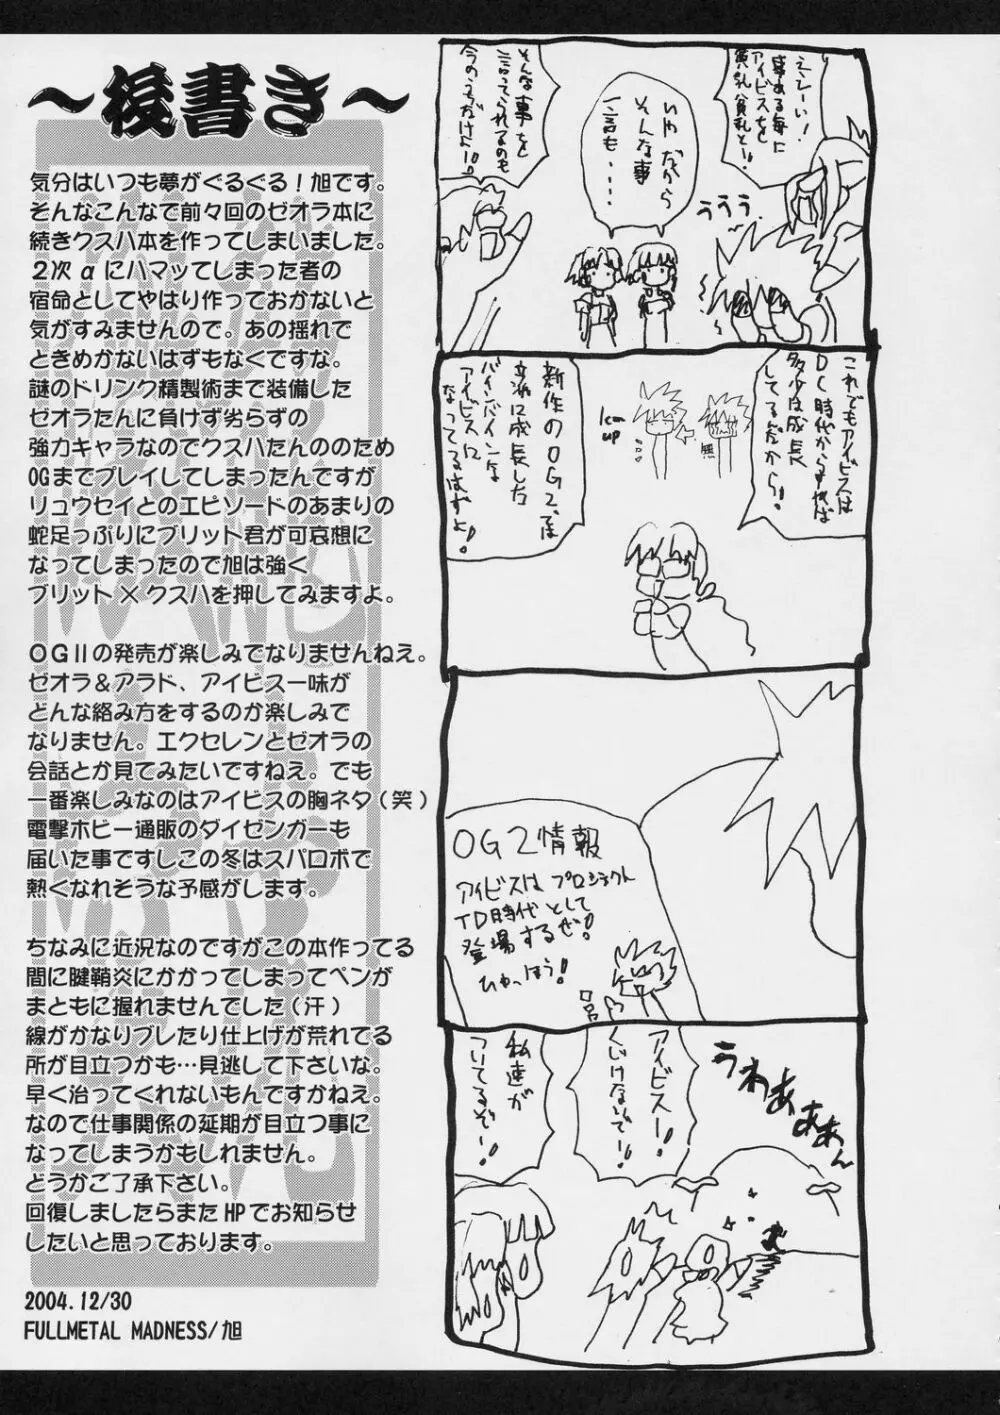 ～後書き～
気分はいつも夢がぐるぐる！旭です。
そんなこんなで前々回のゼオラ本に
続きクスハ本を作ってしまいました。
２次αにハマッてしまった者の
宿命としてやはり作っておかないと
気がすみませんので。あの揺れで
ときめかないはずもなくですな。
謎のドリンク精製術まで装備した
ゼオラたんに負けず劣らずの
強力キャラなのでクスハたんののため
OGまでプレイしてしまったんですが
リュウセイとのエピソードのあまりの
蛇足っぷりにブリット君が可哀想に
なってしまったので旭は強く
ブリット×クスハを押してみますよ。
OGⅡの発売が楽しみでなりませんねえ。
ゼオラ＆アラド、アイビス一味が
どんな絡み方をするのか楽しみで
なりません。エクセレンとゼオラの
会話とか見てみたいですねえ。でも
一番楽しみなのはアイビスの胸ネタ（笑）
電撃ホビー通販のダイゼンガーも
届いた事ですしこの冬はスパロボで
熱くなれそうな予感がします。
ちなみに近況なのですがこの本作ってる
間に腱鞘炎にかかってしまってペンが
まともに握れませんでした（汗）
線がかなりブレたり仕上げが荒れてる
所が目立つかも…見逃して下さいな。
早く治ってくれないもんですかねえ。
なので仕事関係の延期が目立つ事に
なってしまうかもしれません。
どうかご了承下さい。
回復しましたらまたHPでお知らせ
したいと思っております。
2004.12/30
FULLMETAL MADNESS/旭
ええーい！
事ある毎に
アイビスを
貧乳貧乳と！！
いや だから
そんな事
一言も・・・・
そんな事を
言ってられるのも
今のうちだけよ！！
ううう
これでもアイビスは
DC時代からすれば
多少は成長
してるんだから！
無
1cm
up
新作のOG2では
立派に成長した
バインバインな
アイビスに
なってるはずよ！
OG2情報
アイビスは プロジェクト
TD時代として
登場するぜ！
ひゃっほう！
うわあああん
アイビスー！
くじけないでー！
私達が
ついてるぞー！